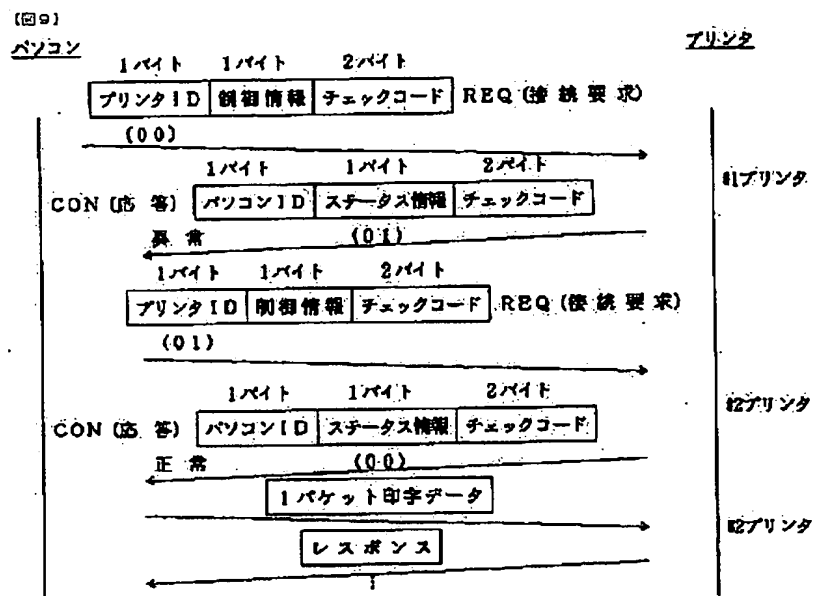 【図9】
パソコン
プリンタ
1バイト 1バイト 2バイト
プリンタID 制御情報 チェックコード REQ(接続要求)
(00)
1バイト 1バイト 2バイト
#1プリンタ
CON(応答) パソコンID ステータス情報 チェックコード
異常 (01)
1バイト 1バイト 2バイト
プリンタID 制御情報 チェックコード REQ(接続要求)
(01)
1バイト 1バイト 2バイト
#2プリンタ
CON(応答) パソコンID ステータス情報 チェックコード
正常 (00)
1パケット印字データ
#2プリンタ
レスポンス